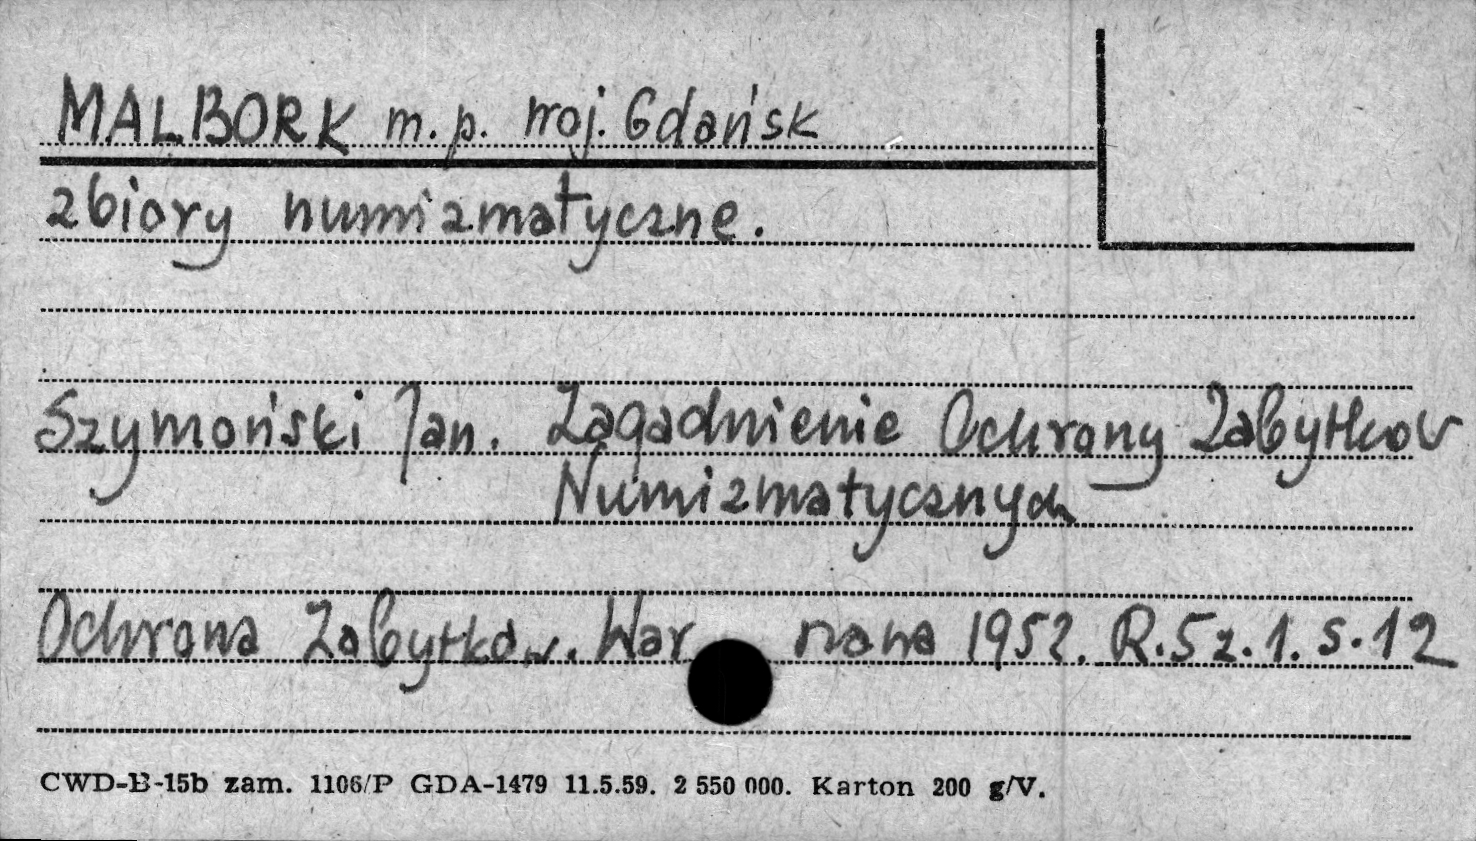 MALBORK m. p. woj. Gdańsk
zbiory numizmatyczne.
Szymański Jan. Zagadnienie Ochrony Zabytków
Numizmatycznych
Ochrona Zabytków. War szawa 1952. R.5 z.1. s.12
CWD-B-15b zam. 1106/P GDA-1479 11.5.59. 2 550 000. Karton 200 g/V.